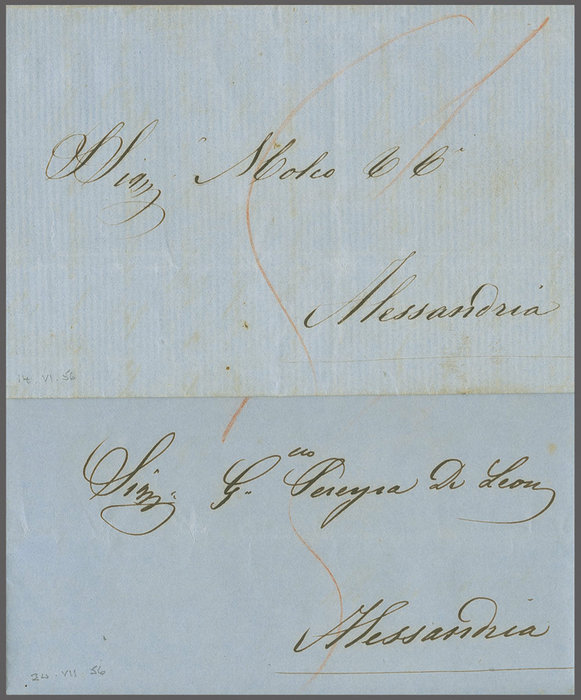 SSigri Molco & C°
Alessandria
14 VI. 56
Sigri G.mo Pereyra De Leon
Alessandria
24 · VII · 56